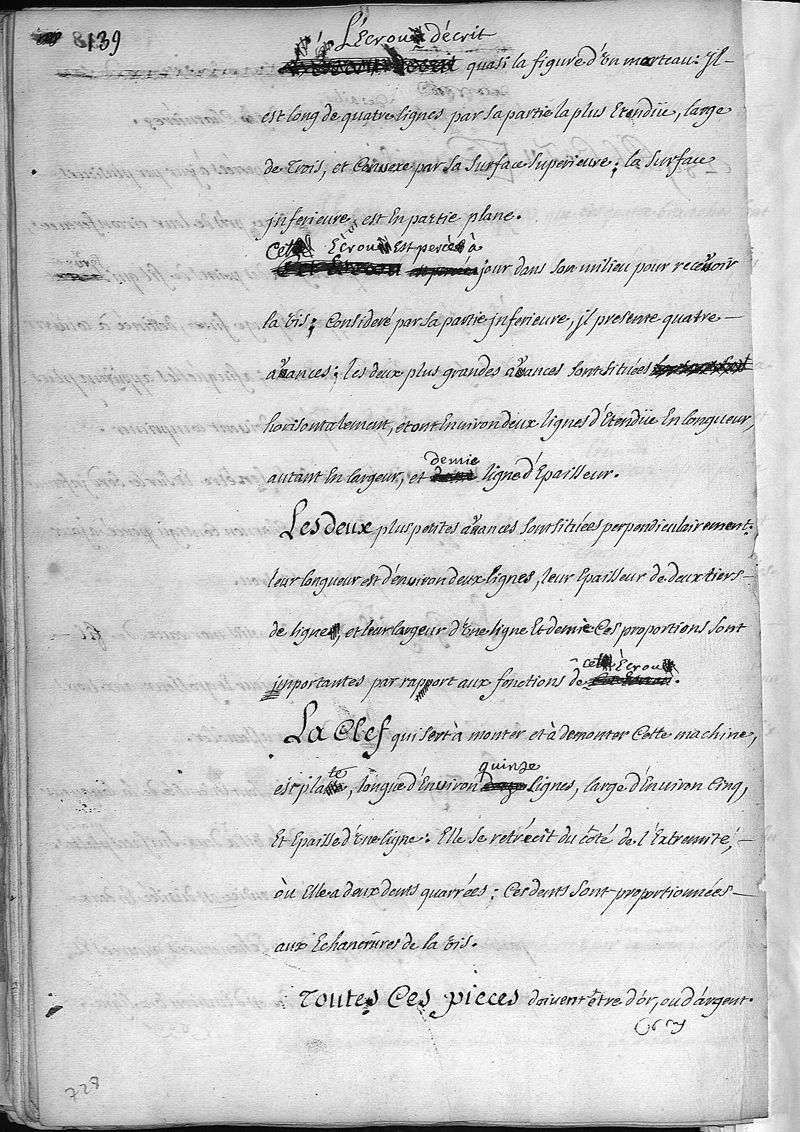 139
L'Ecrou décrit
quasi la figure d'un marteau: Jl-
est long de quatre lignes par sa partie la plus Etendüe, large
de Trois, et Convexe par sa Surface Superieure; la Surface
jnferieure, est En partie plane.
Cet Ecrou Est percé à
jour dans son milieu pour recevoir
la vis; Consideré par sa partie jnferieure, jl presente quatre-
avances; les deux plus grandes avances sont situées
horisontalement, et ont Environ deux lignes d'Etendüe En longueur,
autant En largeur, et demie ligne d'Epaisseur.
Les deux plus petites avances sont situées perpendiculairement:
leur longueur est d'environ deux lignes, leur Epaisseur de deux tiers-
de ligne, et leur largeur d'une ligne Et demie Ces proportions sont
jmportantes par rapport aux fonctions de cet Ecrou.
La Clef qui sert à monter et à demonter Cette machine,
est platte, longue d'Environ quinze lignes, large d'Environ Cinq,
Et Epaisse d'une ligne: Elle se retrécit du côté de l'Extremité,-
où Elle a deux dents quarrées; Ces dents sont proportionnées-
aux Echancrures de la vis.
Toutes Ces pieces doivent être d'or, ou d'argent.
728